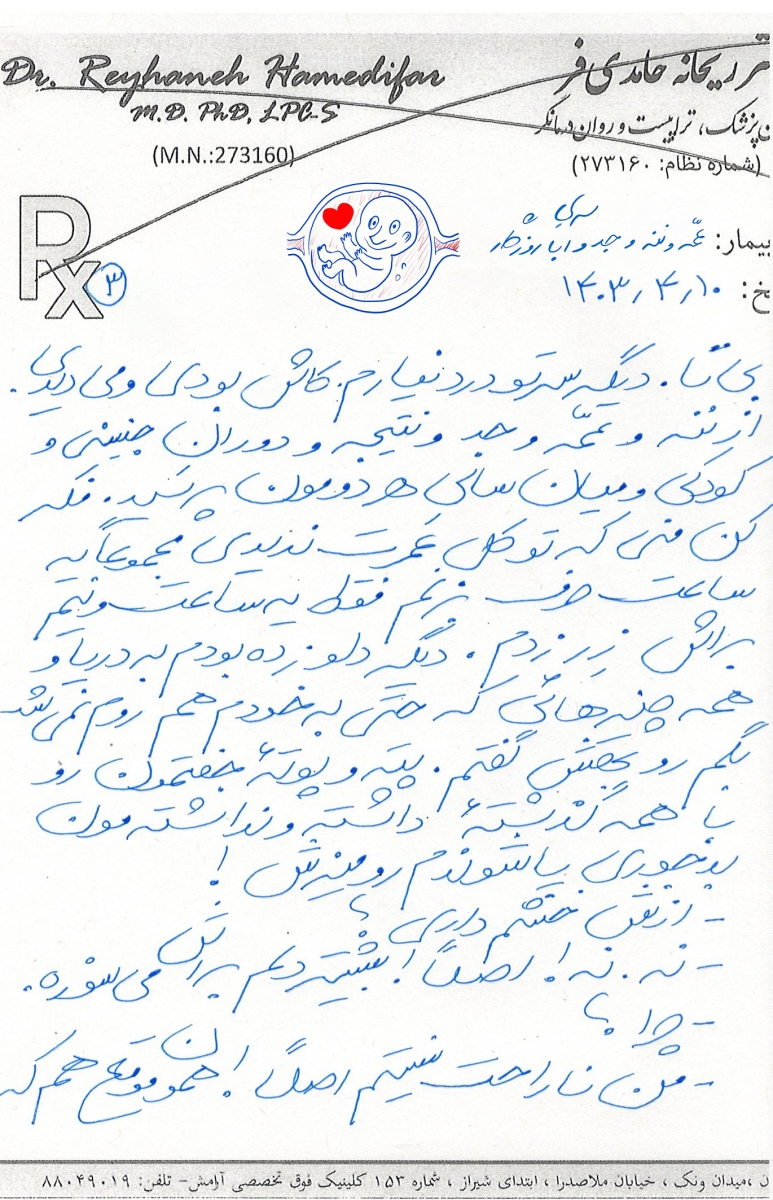 Dr. Reyhaneh Hamedifar
تر ریحانه حامدی فر
M.D. PhD, LPC-S
ن‌پزشک، تراپیست و روان درمانگر
(M.N.:273160)
(شماره نظام: ۲۷۳۱۶۰)
Rx
۳
بیمار: عمّه و ننه و جد و آبا
خ: ۱۴۰۳٫۴٫۱۰
دیگه سرتو درد نیارم. کاش بودی و می دیدی.
از ننه و عمّه و جد و نتیجه و دوران جنینی و
کودکی و میان سالی هردومون پرسید. فکر
کن منی که تو کل عمرت ندیدی مجموعاً یه
ساعت حرف بزنم فقط یه ساعت و نیم
براش زر زدم. دیگه دلو زده بودم به دریا و
همه چیزهائی که حتی به خودم هم روم نمی شد
بگم رو بهش گفتم. پته و پوتهٔ جفتمون رو
با همه گذشتهٔ داشته و نداشته مون
بدجوری پاشوندم رو میزش!
- ازش خشم داری؟
- نه. نه! اصلاً! بیشتر دلم براش می سوزه.
- چرا؟
- من ناراحت نیستم اصلاً! همون موقع هم که
ن ،میدان ونک ، خیابان ملاصدرا ، ابتدای شیراز ، شماره ۱۵۳ کلینیک فوق تخصصی آرامش- تلفن: ۸۸۰۴۹۰۱۹